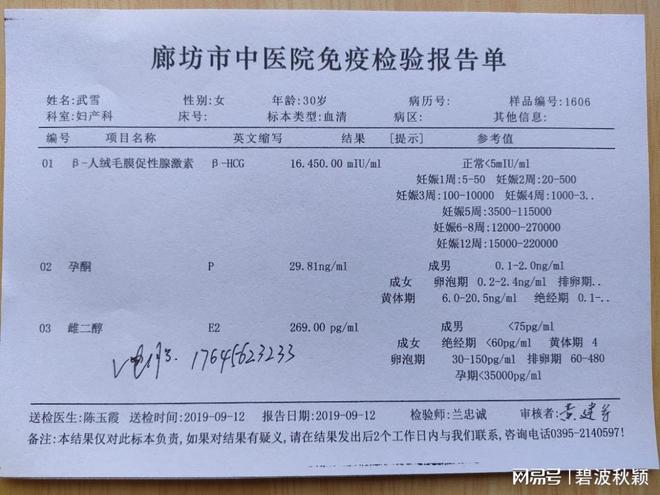 廊坊市中医院免疫检验报告单
姓名:武雪 性别:女 年龄:30岁 病历号: 样品编号:1606
科室:妇产科 床号: 标本类型:血清 病区: 其他信息:
编号 项目名称 英文缩写 结果 [提示] 参考值
01 β-人绒毛膜促性腺激素 β-HCG 16.450.00 mIU/ml 正常<5mIU/ml
妊娠1周:5-50 妊娠2周:20-500
妊娠3周:100-10000 妊娠4周:1000-3..
妊娠5周:3500-115000
妊娠6-8周:12000-270000
妊娠12周:15000-220000
02 孕酮 P 29.81ng/ml 成男 0.1-2.0ng/ml
成女 卵泡期 0.2-2.4ng/ml 排卵期..
黄体期 6.0-20.5ng/ml 绝经期 0.1-..
03 雌二醇 E2 269.00 pg/ml 成男 <75pg/ml
成女 绝经期 <60pg/ml 黄体期 4
卵泡期 30-150pg/ml 排卵期 60-480
孕期<35000pg/ml
17645623233
送检医生:陈玉霞 送检时间:2019-09-12 报告日期:2019-09-12 检验师:兰忠诚 审核者:
备注:本结果仅对此标本负责,如果对结果有疑义,请在结果发出后2个工作日内与我们联系,咨询电话0395-2140597!
网易号|碧波秋颖